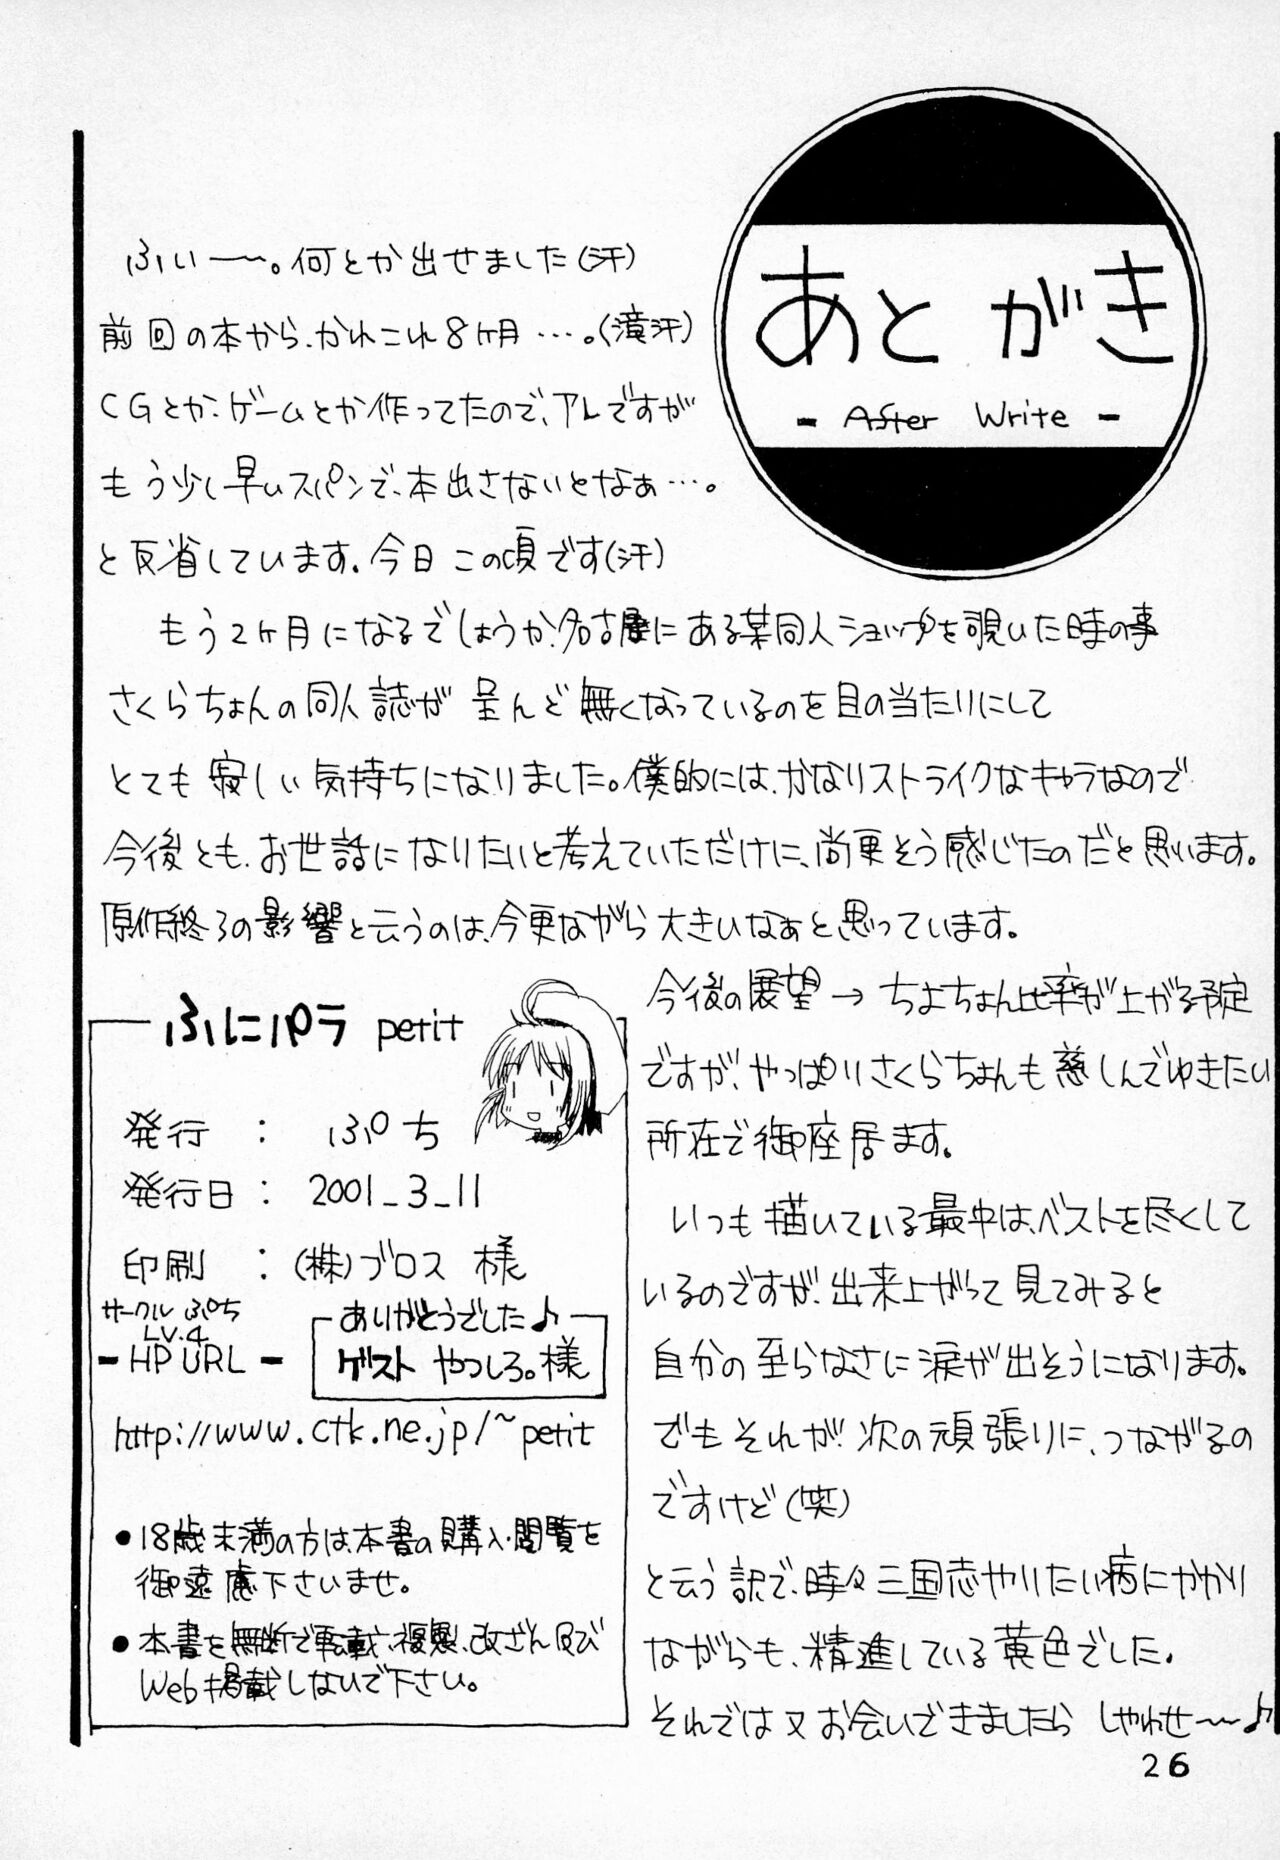 あとがき
- After Write -
ふぃ～。何とか出せました(汗)
前回の本から、かれこれ8ヶ月…。(滝汗)
CGとか、ゲームとか作ってたので、アレですが
もう少し早いスパンで、本出さないとなぁ…。
と反省しています。今日この頃です(汗)
もう2ヶ月になるでしょうか、名古屋にある某同人ショップを覗いた時の事
さくらちょんの同人誌が呈んど無くなっているのを目の当たりにして
とても寂しい気持ちになりました。僕的には、かなりストライクなキャラなので
今後とも、お世話になりたいと考えていただけに、尚更そう感じたのだと思います。
原作終了の影響と云うのは、今更ながら大きいなぁと思っています。
今後の展望→ちよちょん比率が上がる予定
ですが、やっぱりさくらちょんも慈しんでゆきたい
所在で御座居ます。
いつも描いている最中は、ベストを尽くして
いるのですが、出来上がって見てみると
自分の至らなさに涙が出そうになります。
でもそれが次の頑張りに、つながるの
ですけど(笑)
と云う訳で、時々三国志やりたい病にかかり
ながらも、精進している黄色でした。
それでは又お会いできましたら しやわせ～～♪
ふにパラ petit
発行 : ぷち
発行日 : 2001_3_11
印刷 : (株)ブロス 様
サークル ぷち
LV.4
- HP URL -
ありがとうでした♪
ゲスト やつしろ。様
http://www.ctk.ne.jp/~petit
●18歳未満の方は本書の購入・閲覧を
御遠慮下さいませ。
●本書を無断で転載、複製、改ざん及び
Web掲載しないで下さい。
26